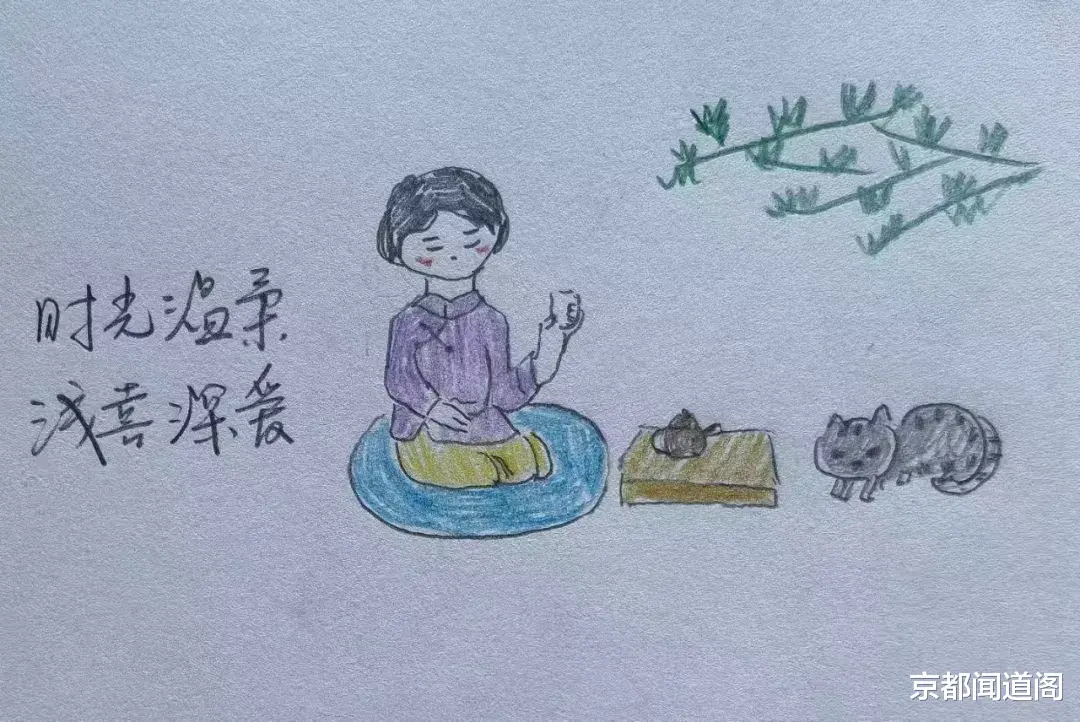 时光温柔
浅喜深爱
京都闻道阁